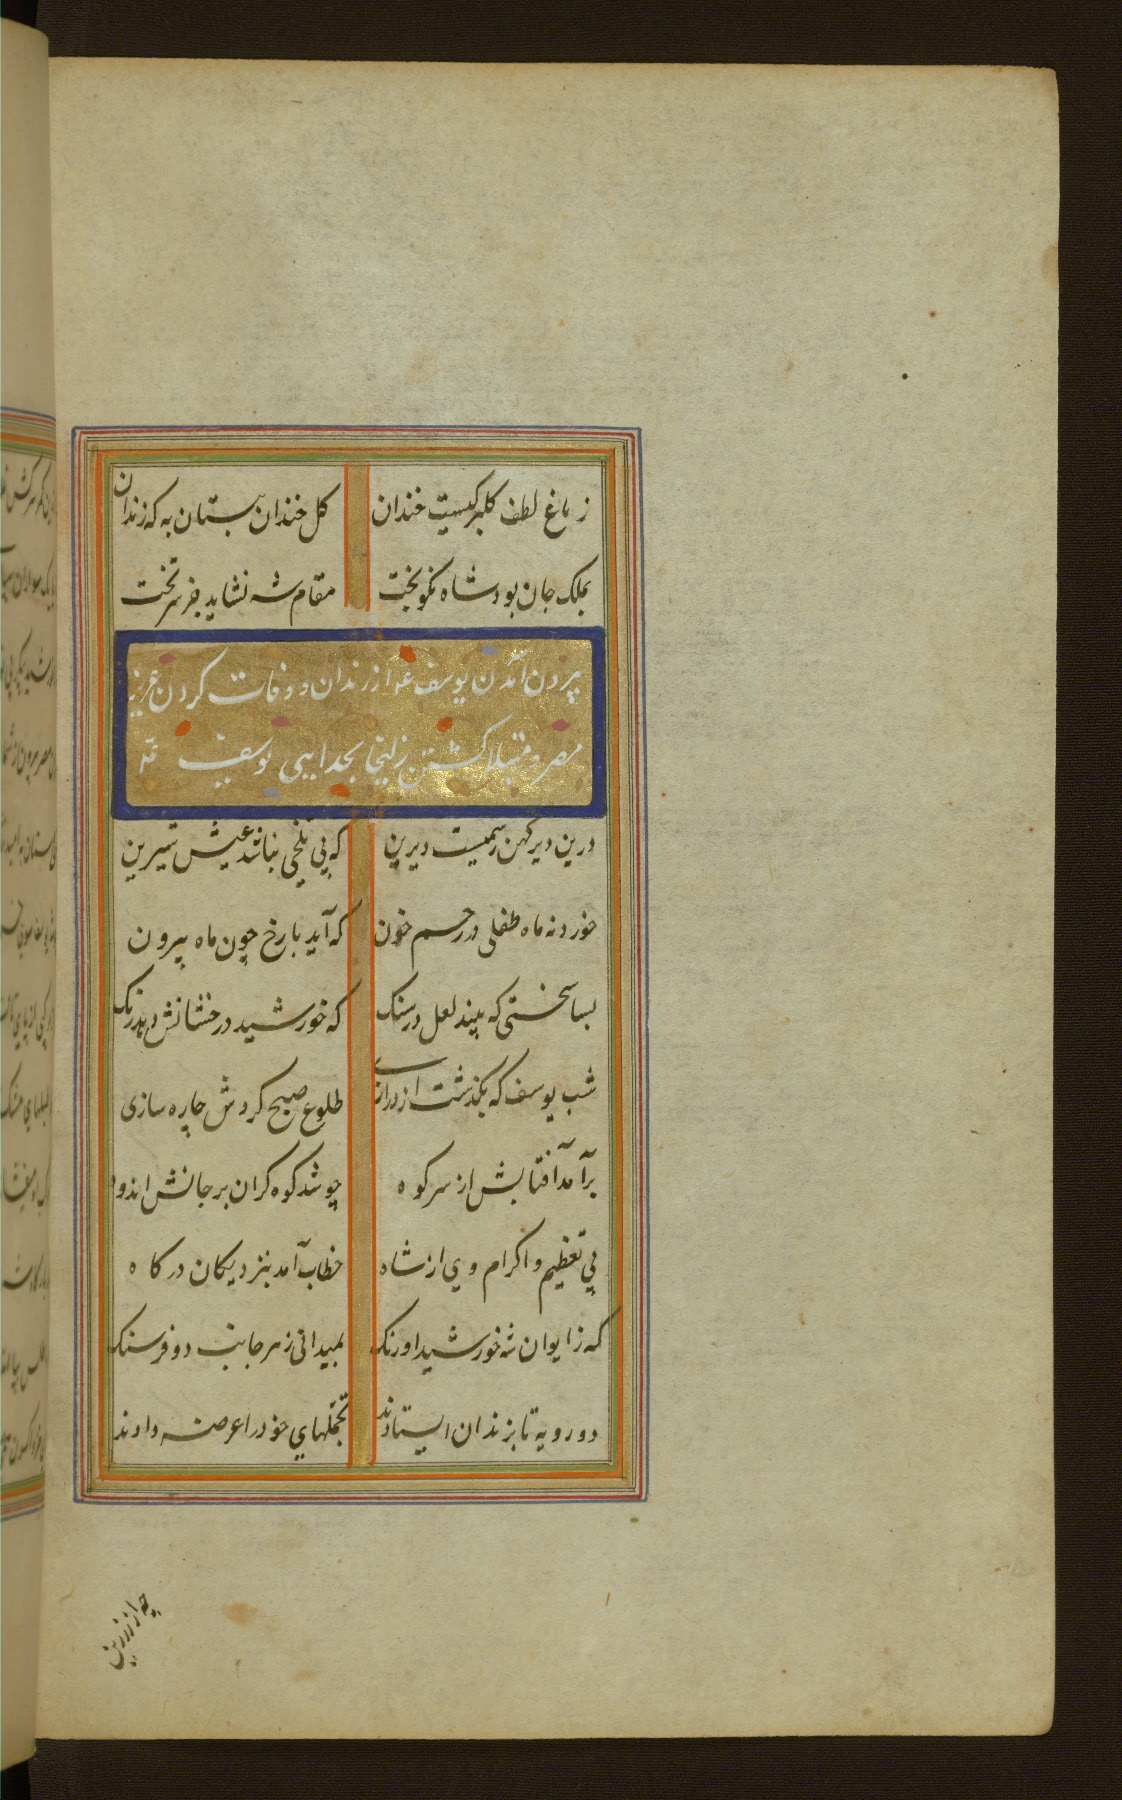 ز باغ لطف کلبرکیست خندان کل خندان بستان به که زندان
بملک جان بود شاه نکوبخت مقام شه نشاید جز سر تخت
بیرون آمدن یوسف عه از زندان و وفات کردن عزیز
مصر و مبتلا کشتن زلیخا بجدایی یوسف عه
درین دیر کهن رسمیست دیرین که بی تلخی نباشد عیش شیرین
خورد نه ماه طفلی در رحم خون که آید با رخ چون ماه بیرون
بسا سختی که بیند لعل در سنک که خورشید درخشانش دهد رنک
شب یوسف که بکذشت از درازی طلوع صبح کردش چاره سازی
چو شد کوه کران بر جانش اندوه برآمد آفتابش از سر کوه
پی تعظیم و اکرام وی از شاه خطاب آمد بنزدیکان درکاه
که ز ایوان شه خورشید اورنک بمیدانی ز هر جانب دو فرسنک
دو رویه تا بزندان ایستادند تجملهای خود را عرضه دادند
چه از زرین